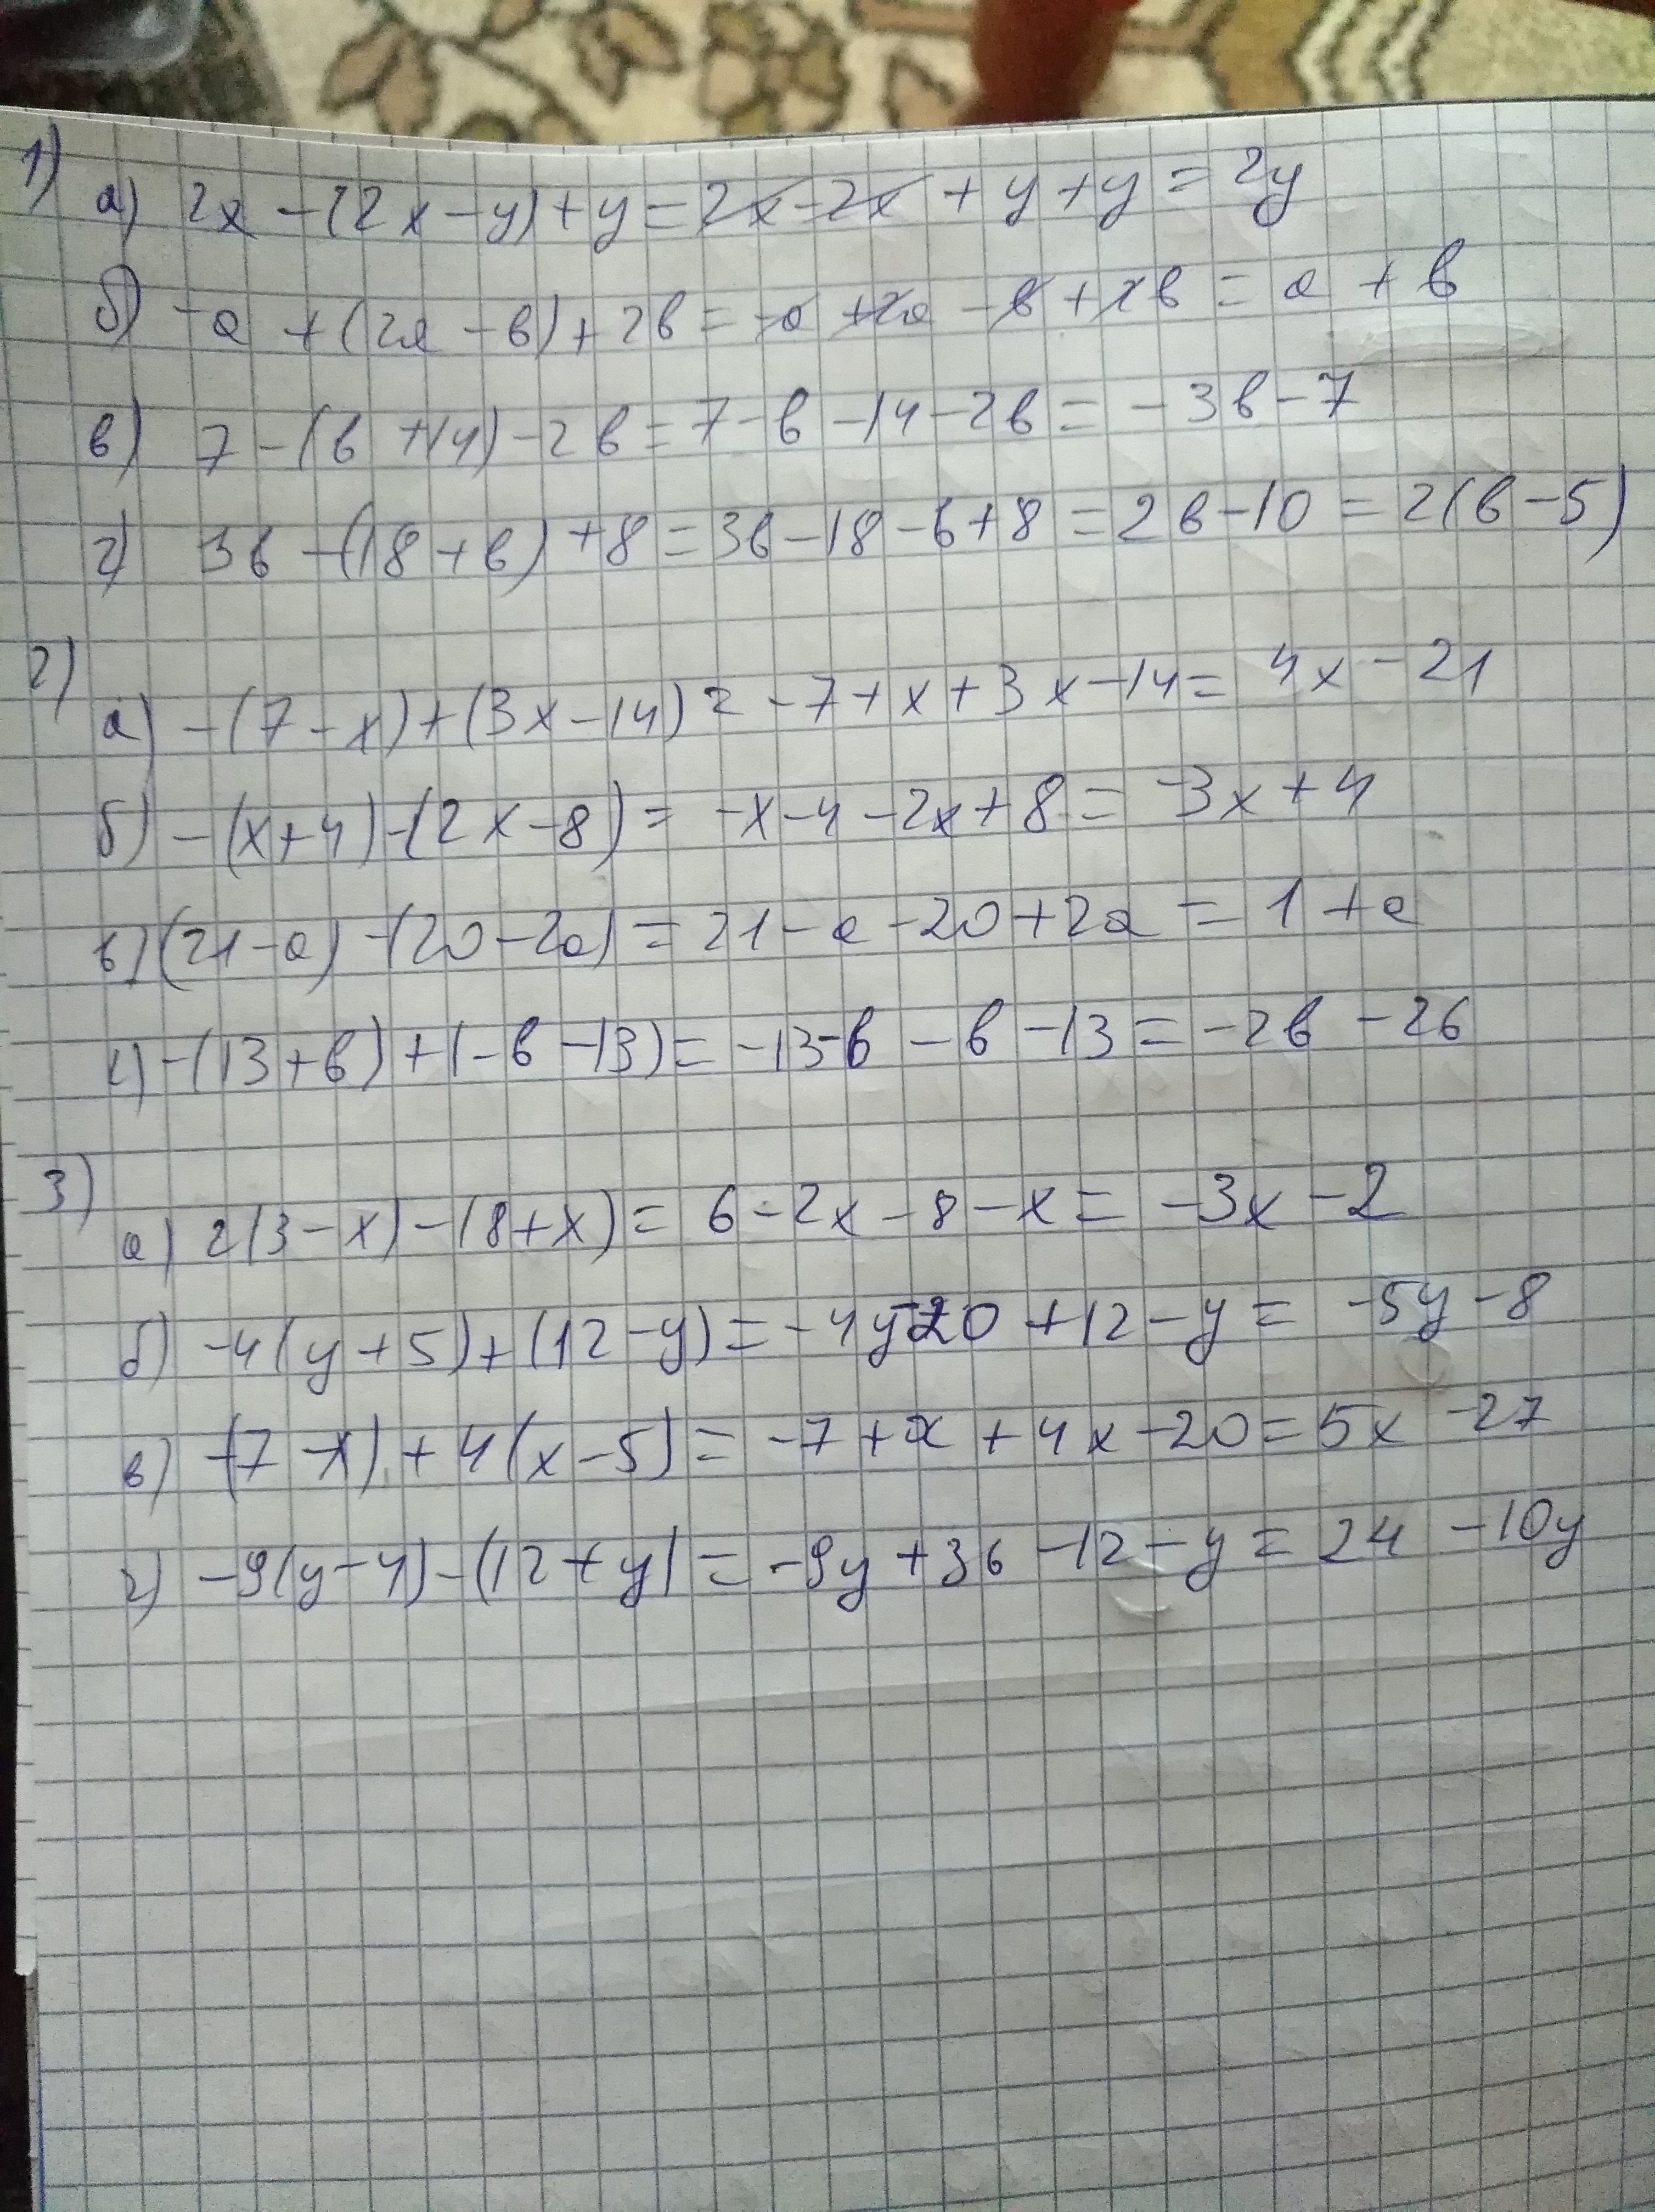 1)
а) 2x - (2x - y) + y = 2x - 2x + y + y = 2y
б) -a + (2a - в) + 2в = -a + 2a - в + 2в = a + в
в) 7 - (в + 14) - 2в = 7 - в - 14 - 2в = -3в - 7
г) 3в - (18 + в) + 8 = 3в - 18 - в + 8 = 2в - 10 = 2(в - 5)
2)
а) -(7 - x) + (3x - 14) = -7 + x + 3x - 14 = 4x - 21
б) -(x + 4) - (2x - 8) = -x - 4 - 2x + 8 = -3x + 4
в) (21 - a) - (20 - 2a) = 21 - a - 20 + 2a = 1 + a
г) -(13 + в) + (-в - 13) = -13 - в - в - 13 = -2в - 26
3)
а) 2(3 - x) - (8 + x) = 6 - 2x - 8 - x = -3x - 2
б) -4(y + 5) + (12 - y) = -4y - 20 + 12 - y = -5y - 8
в) -(7 - x) + 4(x - 5) = -7 + x + 4x - 20 = 5x - 27
г) -9(y - 4) - (12 + y) = -9y + 36 - 12 - y = 24 - 10y